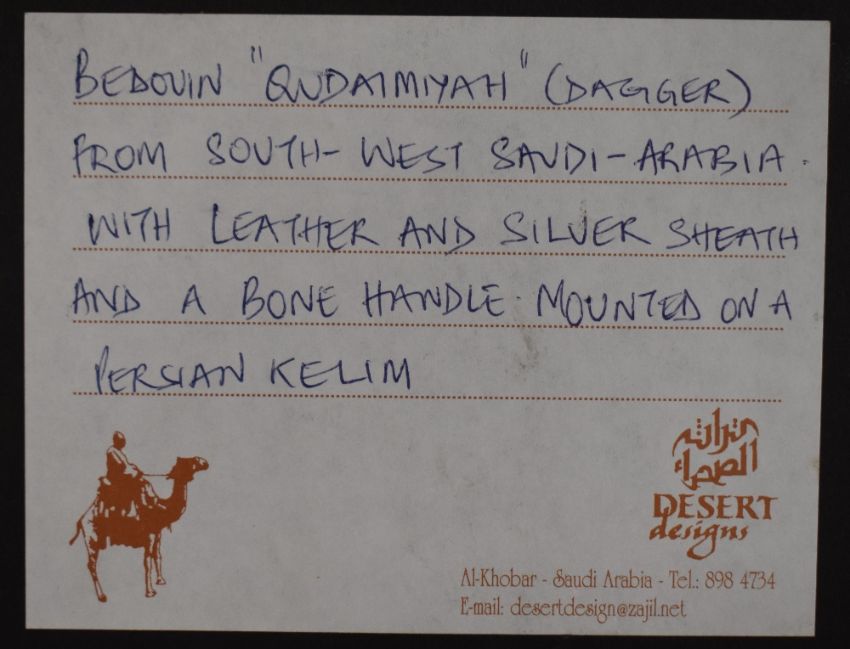 BEDOUIN "QUDAIMIYAH" (DAGGER)
FROM SOUTH-WEST SAUDI-ARABIA.
WITH LEATHER AND SILVER SHEATH
AND A BONE HANDLE. MOUNTED ON A
PERSIAN KELIM
تراث
الصحراء
DESERT
designs
Al-Khobar - Saudi Arabia - Tel.: 898 4734
E-mail: desertdesign@zajil.net